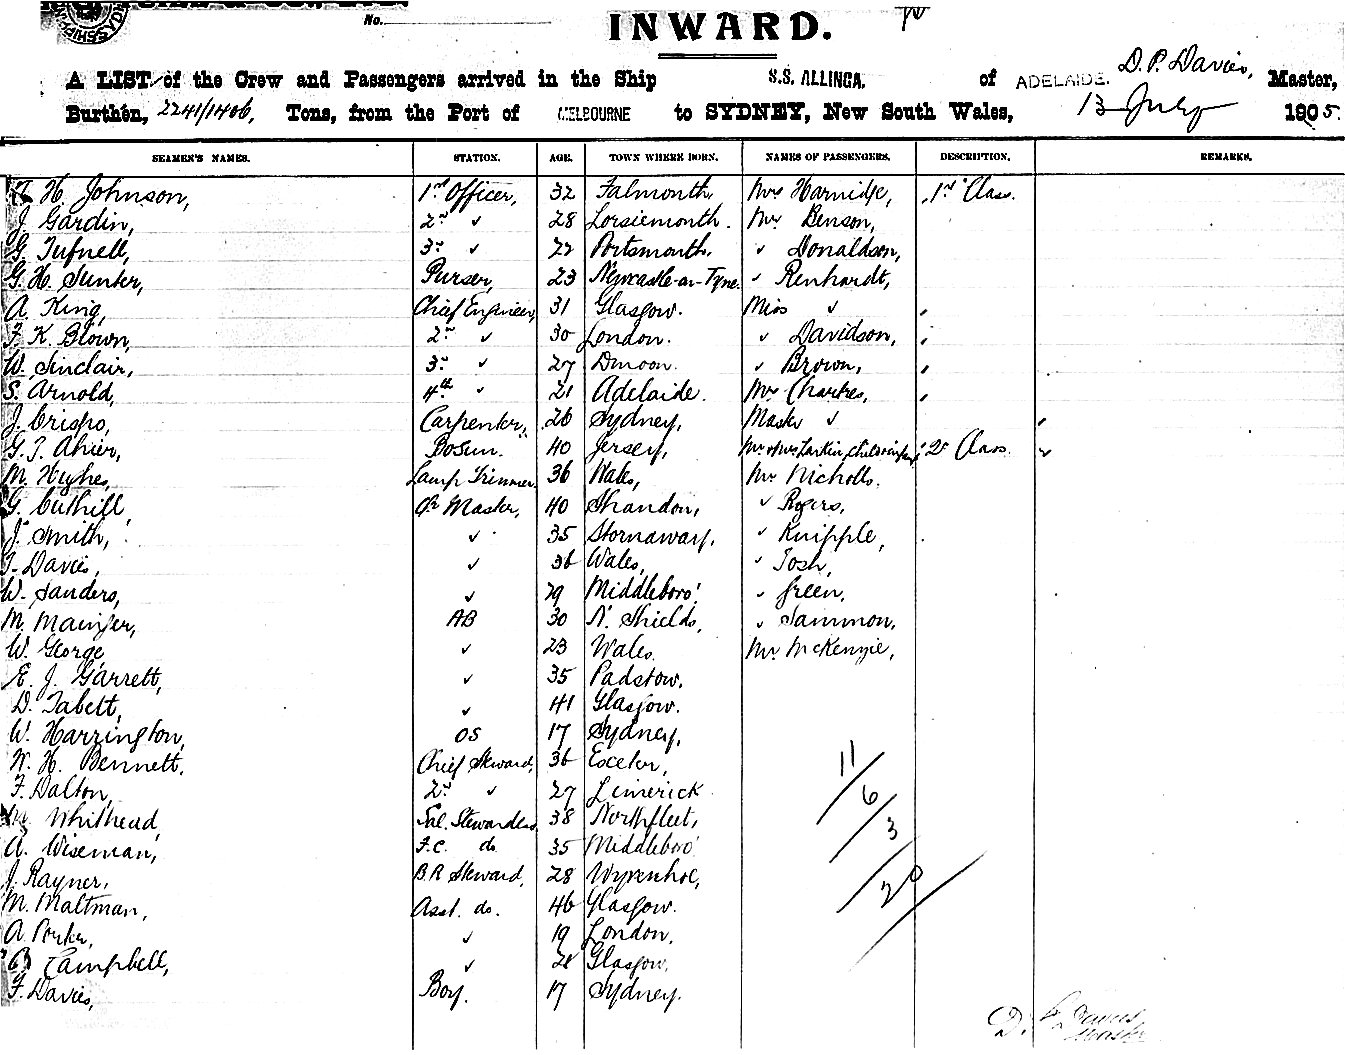 No.
INWARD.
A LIST of the Crew and Passengers arrived in the Ship S.S. ALLINGA. of ADELAIDE. D. P. Davies, Master,
Burthen, 2241/1406, Tons, from the Port of MELBOURNE to SYDNEY, New South Wales, 13 July 1905.
SEAMEN'S NAMES. STATION. AGE. TOWN WHERE BORN. NAMES OF PASSENGERS. DESCRIPTION. REMARKS.
H. Johnson, 1st Officer, 32 Falmouth. Mrs Harnidge, 1st Class.
J. Gardin, 2nd " 28 Lossiemouth. Mrs Benson,
G. Tufnell, 3rd " 22 Portsmouth. " Donaldson,
G. H. Sunter, Purser, 23 Newcastle-on-Tyne. " Renhardt,
A. King, Chief Engineer, 31 Glasgow. Miss "
F. K. Blown, 2nd " 30 London. " Davidson,
W. Sinclair, 3rd " 27 Dunoon. " Brown,
S. Arnold, 4th " 21 Adelaide. Mrs Chartres,
J. Crisps, Carpenter, 26 Sydney, Master "
G. J. Ahier, Bosun. 40 Jersey, Mr & Mrs Larkin, 2nd Class.
M. Hughes, Lamp Trimmer. 36 Wales, Mr Nicholls.
G. Cuthill, Qr Master, 40 Shandon, " Rogers,
J. Smith, " 35 Stornaway, " Knipple,
J. Davies, " 36 Wales, " Tosh,
W. Sanders, " 29 Middleboro' " Green,
M. Mainger, AB 30 N. Shields, " Sammon,
W. George, " 23 Wales. Mr. McKenzie,
E. J. Garrett, " 35 Padstow.
D. Tabett, " 41 Glasgow.
W. Harrington, OS 17 Sydney,
W. H. Bennett. Chief Steward, 36 Exeter,
F. Dalton, 2nd " 27 Limerick.
Whithead, Sal. Stewardess 38 Northfleet,
A. Wiseman, F.C. do. 35 Middleboro'
J. Rayner, B.R Steward, 28 Wyvenhoe,
M. Maltman, Asst. do. 46 Glasgow.
A. Porter, " 19 London,
Campbell, " Glasgow,
F. Davies, Boy. 17 Sydney.
11
6
3
20
D. P. Davies
Master